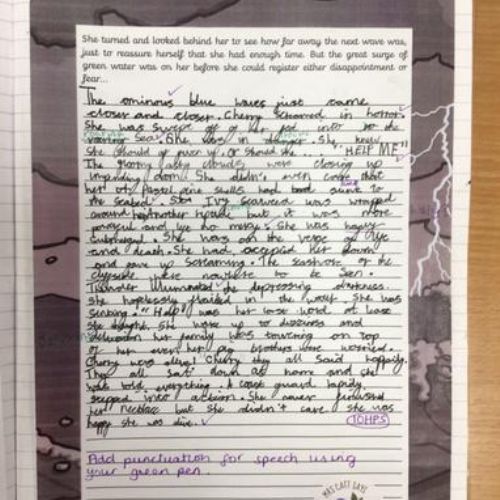 She turned and looked behind her to see how far away the next wave was,
just to reassure herself that she had enough time. But the great surge of
green water was on her before she could register either disappointment or
fear...
The ominous blue waves just came
closer and closer. Cherry screamed in horror.
She was swept of of her feet into to the
roaring Sea. She was in danger. She knew
She should of given up. Or should she... "HELP ME"
The ashy clouds were closing up
impending doom. She didn't even care that
her pastel pine shells had sunk to
the seabed. Ivy Seaweed was wrapped
around but it was more
and had no mercy. She was
submerged. She was on the verge of life
and death. She had accepted her
and gave up Screaming. The seashore or the
were nowhere to be Seen.
Thunder illuminated the depressing darkness.
She hopelessly in the water. She was
Sinking. "Help" was her last word at least
she thought. She woke up to dizziness and
her family was towering on top
of her even her brothers were worried.
Cherry was alive! Cherry they all said happily.
They all sat down at home and she
told everything. A coast guard rapidly
stepped into action. She never
her necklace but she didn't care she was
happy she was alive.
Add punctuation for speech using
your green pen.